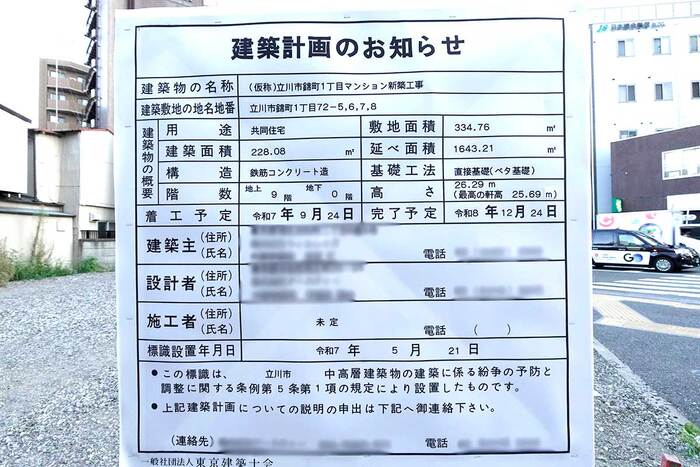 建築計画のお知らせ
建築物の名称 （仮称）立川市錦町1丁目マンション新築工事
建築敷地の地名地番 立川市錦町1丁目72-5,6,7,8
建築物の概要
用途 共同住宅 敷地面積 334.76 ㎡
建築面積 228.08 ㎡ 延べ面積 1643.21 ㎡
構造 鉄筋コンクリート造 基礎工法 直接基礎(ベタ基礎)
階数 地上 9 階 地下 0 階 高さ 26.29 m (最高の軒高 25.69) m
着工予定 令和7 年 9 月 24 日 完了予定 令和8 年 12 月 24 日
建築主 (住所) (氏名) 電話
設計者 (住所) (氏名) 電話
施工者 (住所) (氏名) 未定 電話 ( )
標識設置年月日 令和7 年 5 月 21 日
● この標識は、 立川市 中高層建築物の建築に係る紛争の予防と
調整に関する条例第5条第1項の規定により設置したものです。
● 上記建築計画についての説明の申出は下記へ御連絡下さい。
(連絡先) 電話
一般社団法人 東京建築士会
GO